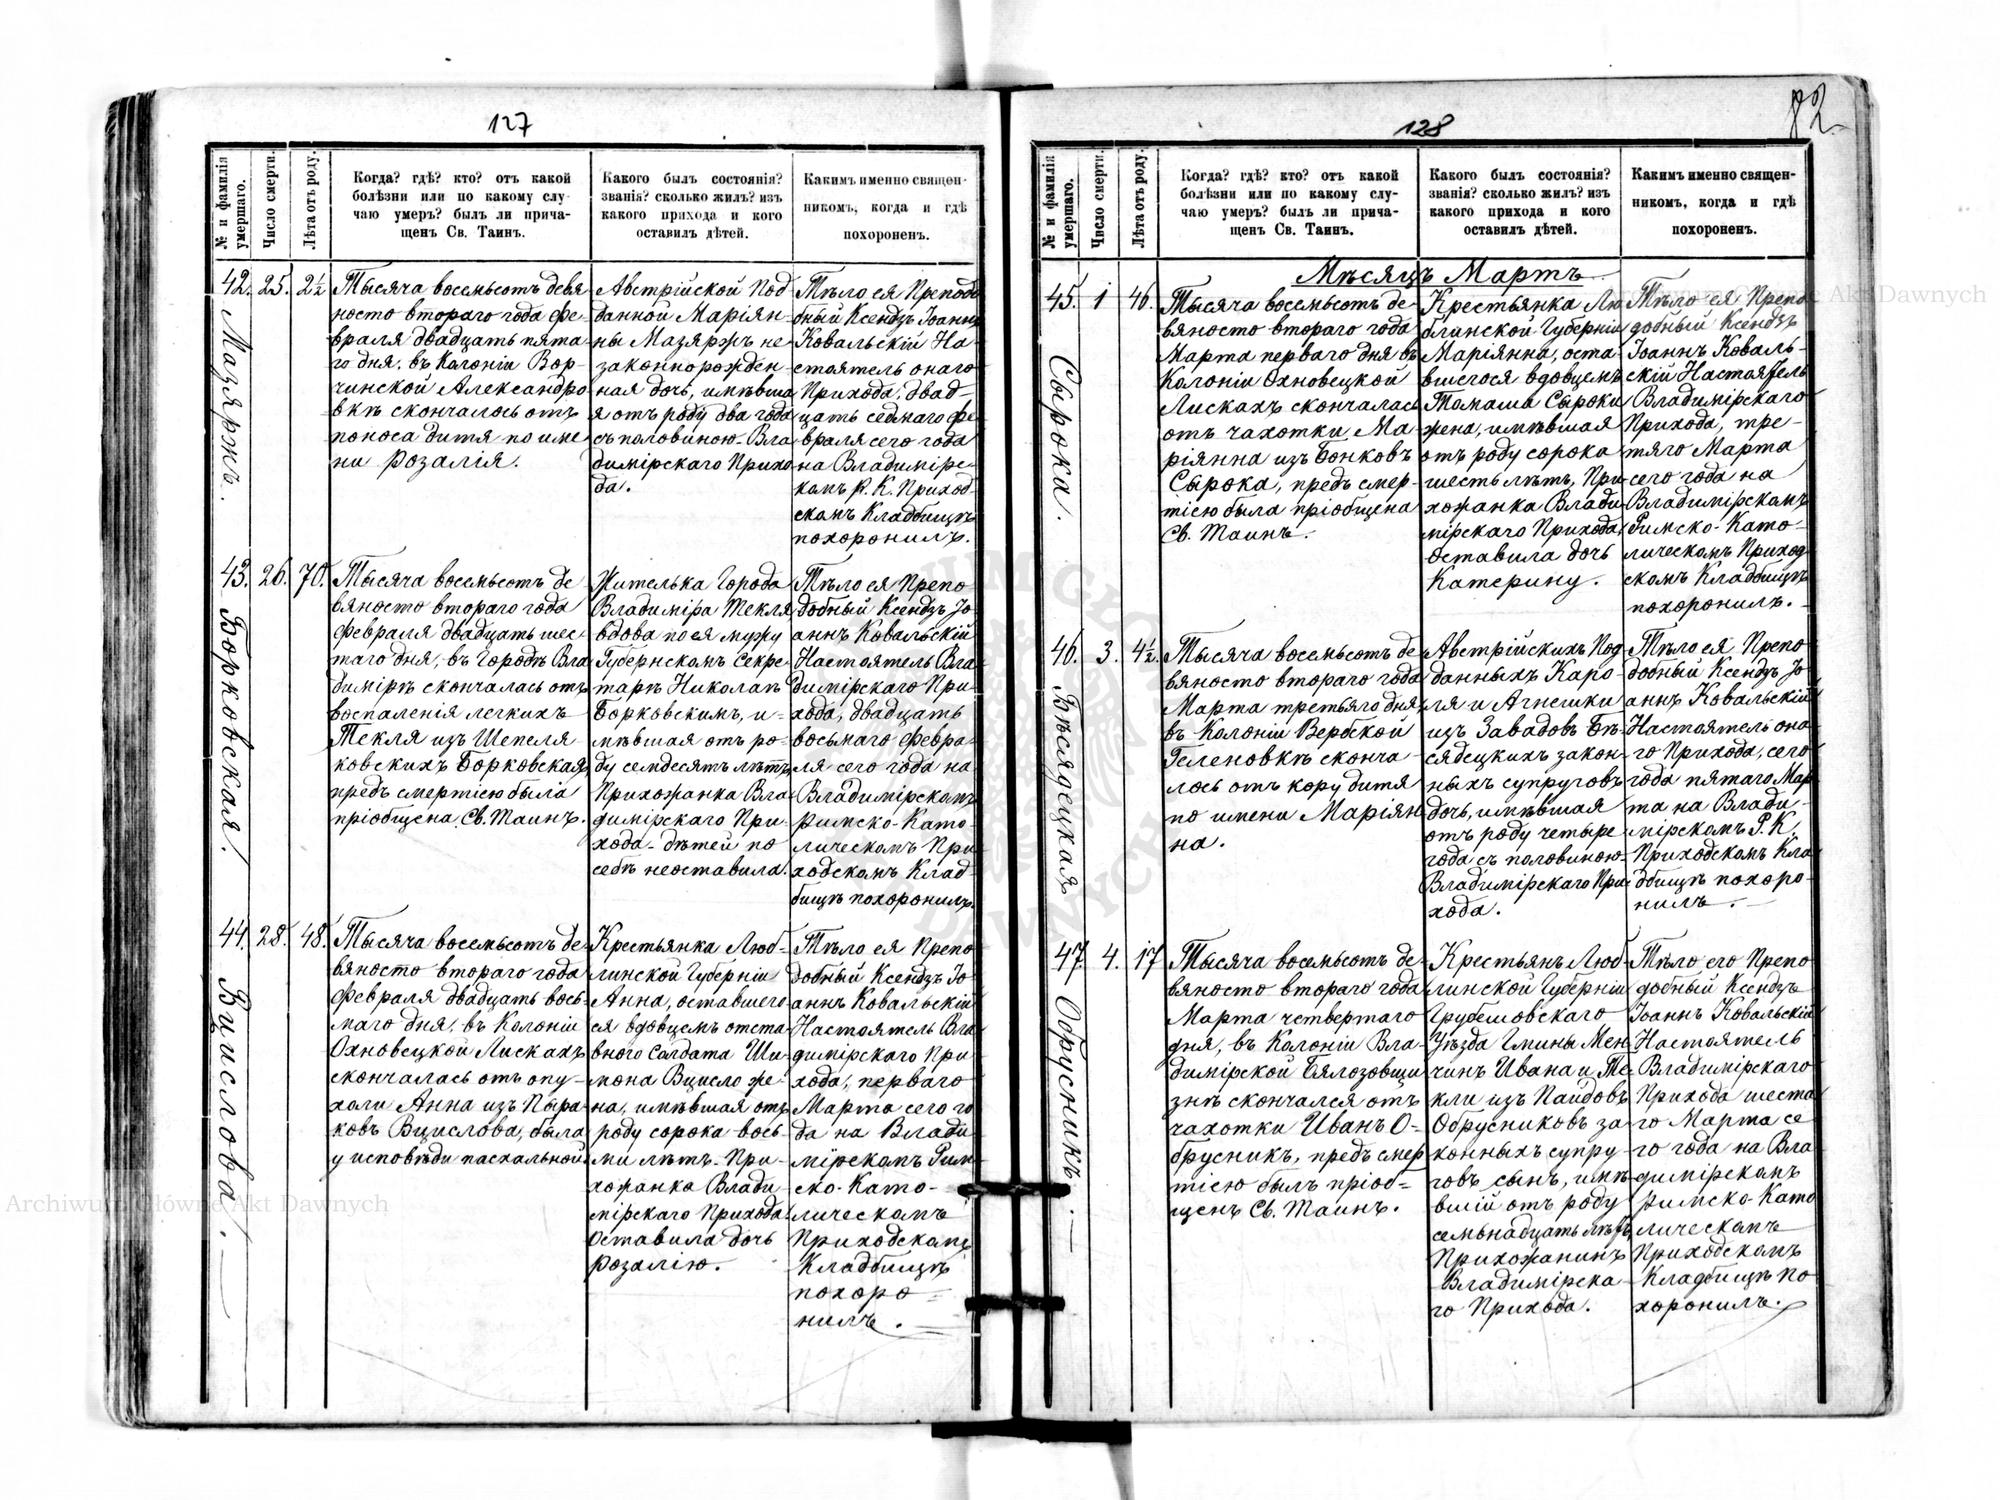 127
№ и фамилія умершаго.
Число смерти.
Лѣта отъ роду.
Когда? гдѣ? кто? отъ какой
болѣзни или по какому слу-
чаю умеръ? былъ ли прича-
щенъ Св. Таинъ.
Какого былъ состоянія?
званія? сколько жилъ? изъ
какого прихода и кого
оставилъ дѣтей.
Какимъ именно священ-
никомъ, когда и гдѣ
похороненъ.
42.
Мазяржъ.
25.
2½
Тысяча восемьсотъ девя
носто втораго года фе-
враля двадцать пята-
го дня, въ Колоніи Вор-
чинской Александро
вкѣ скончалось отъ
поноса дитя по име
ни Розалія.
Австрійской Под
данной Маріян-
ны Мазяржъ не-
законнорожден-
ная дочь, имѣвша
я отъ роду два года
съ половиною - Вла
димірскаго Прихо
да.
Тѣло ея Преподо
бный Ксендзъ Іоаннъ
Ковальскій На-
стоятель онаго
Прихода, двад-
цать седмаго фе-
враля сего года
на Владимірс-
комъ Р. К. Приход-
скомъ Кладбищѣ
похоронилъ.
43.
Борковская.
26.
70.
Тысяча восемьсотъ де
вяносто втораго года
февраля двадцать шес-
таго дня, въ Городѣ Вла
димірѣ скончалась отъ
воспаленія легкихъ
Текля изъ Шепеля
ковскихъ Борковская,
предъ смертію была
пріобщена Св. Таинъ.
Жителька Города
Владиміра Текля
вдова по ея мужу
Губернскомъ Секре-
тарѣ Николаѣ
Борковскимъ, и-
мѣвшая отъ ро-
ду семдесятъ лѣтъ,
Прихожанка Вла-
димірскаго При-
хода - дѣтей по
себѣ неоставила.
Тѣло ея Препо
добный Ксендзъ Іо-
аннъ Ковальскій
Настоятель Вла-
димірскаго При-
хода, двадцать
восьмаго Февра-
ля сего года на
Владимірскомъ
Римско-Като-
лическомъ При
ходскомъ Клад-
бищѣ похоронилъ.
44.
Вцислова.
28.
48.
Тысяча восемьсотъ де-
вяносто втораго года
февраля двадцать вось-
маго дня, въ Колоніи
Охновецкой Лискахъ
скончалась отъ опу-
холи Анна изъ Пыра-
ковъ Вцислова, была
у исповѣди пасхальной.
Крестьянка Люб-
линской Губерніи
Анна, оставшего-
ся вдовцемъ отста-
вного Солдата Ши-
мона Вцисло же-
на, имѣвшая отъ
роду сорока вось-
ми лѣтъ - При-
хожанка Влади-
мірскаго Прихода.
Оставила дочь
Розалію.
Тѣло ея Препо
добный Ксендзъ Іо-
аннъ Ковальскій
Настоятель Вла
димірскаго При
хода, перваго
Марта сего го
да на Влади
мірскомъ Рим-
ско-Като-
лическомъ
Приходскомъ
Кладбищѣ
похоро-
нилъ.
82
128
№ и фамилія умершаго.
Число смерти.
Лѣта отъ роду.
Когда? гдѣ? кто? отъ какой
болѣзни или по какому слу-
чаю умеръ? былъ ли прича-
щенъ Св. Таинъ.
Какого былъ состоянія?
званія? сколько жилъ? изъ
какого прихода и кого
оставилъ дѣтей.
Какимъ именно священ-
никомъ, когда и гдѣ
похороненъ.
Мѣсяцъ Мартъ
45.
Сырока.
1
46.
Тысяча восемьсотъ де-
вяносто втораго года
Марта перваго дня въ
Колоніи Охновецкой
Лискахъ скончалась
отъ чахотки Ма-
ріянна изъ Бонковъ
Сырока, предъ смер-
тію была пріобщена
Св. Таинъ.
Крестьянка Лю
блинской Губерніи
Маріянна, оста-
вшегося вдовцемъ
Томаша Сыроки
жена, имѣвшая
отъ роду сорока
шесть лѣтъ, При
хожанка Влади
мірскаго Прихода,
Оставила дочь
Катерину.
Тѣло ея Препо
добный Ксендзъ
Іоаннъ Коваль-
скій Настоятель
Владимірскаго
Прихода, тре-
тяго Марта
сего года на
Владимірскомъ
Римско-Като-
лическомъ Приход
скомъ Кладбищѣ
похоронилъ.
46.
Бѣсядецкая
3.
4½.
Тысяча восемьсотъ де-
вяносто втораго года
Марта третьяго дня,
въ Колоніи Вербской
Геленовкѣ сконча
лось отъ кору дитя
по имени Маріян
на.
Австрійскихъ Под
данныхъ Каро-
ля и Агнешки
изъ Завадовъ Бѣ-
сядецкихъ закон-
ныхъ супруговъ
дочь, имѣвшая
отъ роду четыре
года съ половиною-
Владимірскаго При-
хода.
Тѣло ея Препо
добный Ксендзъ Іо
аннъ Ковальскій
Настоятель она-
го Прихода, сего
года пятаго Мар
та на Влади-
мірскомъ Р. К.
Приходскомъ Кла
дбищѣ похоро-
нилъ.
47.
Обрусникъ.
4.
17
Тысяча восемьсотъ де-
вяносто втораго года
Марта четвертаго
дня, въ Колоніи Вла-
димірской Бялозовщи
знѣ скончался отъ
чахотки Иванъ О-
брусникъ, предъ смер
тію былъ пріоб-
щенъ Св. Таинъ.
Крестьянъ Люб-
линской Губерніи
Грубешовскаго
Уѣзда Гмины Мен
чинъ Ивана и Те-
кли изъ Пайдовъ
Обрусниковъ за-
конныхъ супру-
говъ сынъ, имѣ-
вшій отъ роду
семьнадцать лѣтъ,
Прихожанинъ
Владимірска-
го Прихода.
Тѣло его Препо
добный Ксендзъ
Іоаннъ Ковальскій
Настоятель
Владимірскаго
Прихода шеста
го Марта се
го года на Вла
димірскомъ
Римско-Като
лическомъ
Приходскомъ
Кладбищѣ по
хоронилъ.
Archiwum Główne Akt Dawnych